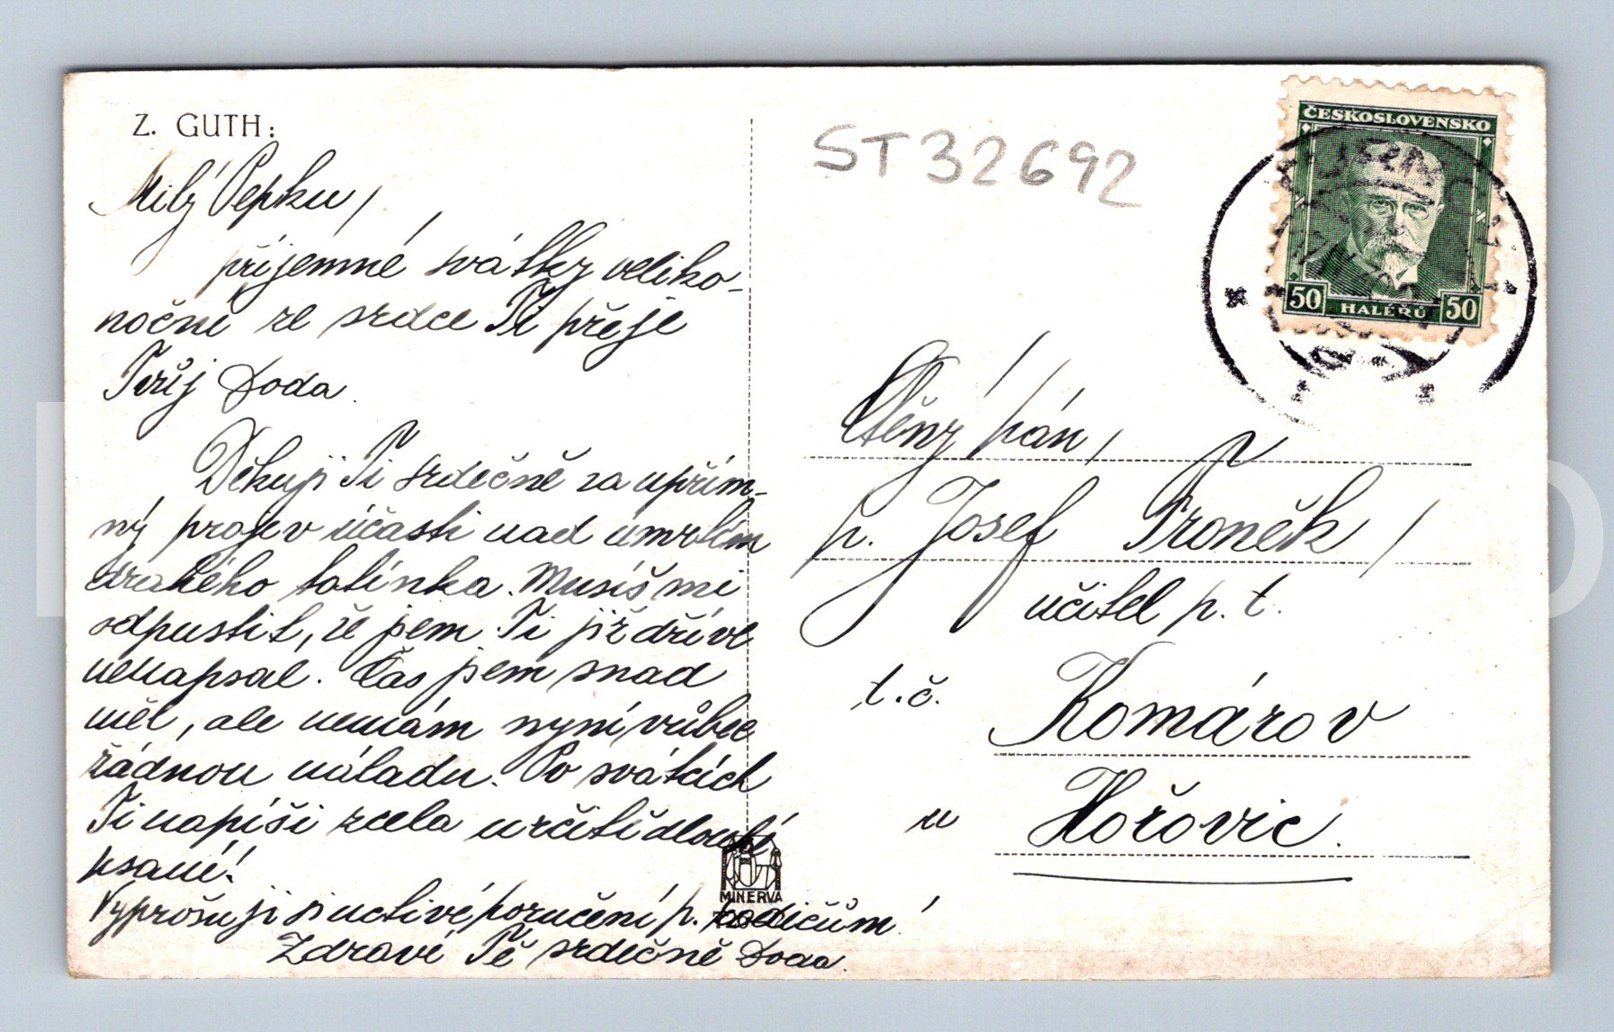 Z. GUTH:
Milý Pepku,
příjemné svátky veliko-
noční ze srdce Ti přeje
Tvůj Doda.
Děkuji Ti srdečně za upřím-
ný projev účasti nad úmrtím
drahého tatínka. Musíš mi
odpustit, že jsem Ti již dříve
nenapsal. Čas jsem snad
měl, ale nemám nyní vůbec
žádnou náladu. Po svátcích
Ti napíši zcela určitě dlouhé
psaní!
Vyprošuji si uctivé poručení p. rodičům!
Zdraví Tě srdečně Doda.
MINERVA
ST32692
ČESKOSLOVENSKO
50 HALÉŘŮ 50
Ctěný pán,
p. Josef Proněk,
učitel p. t.
t.č. Komárov
u Hořovic.